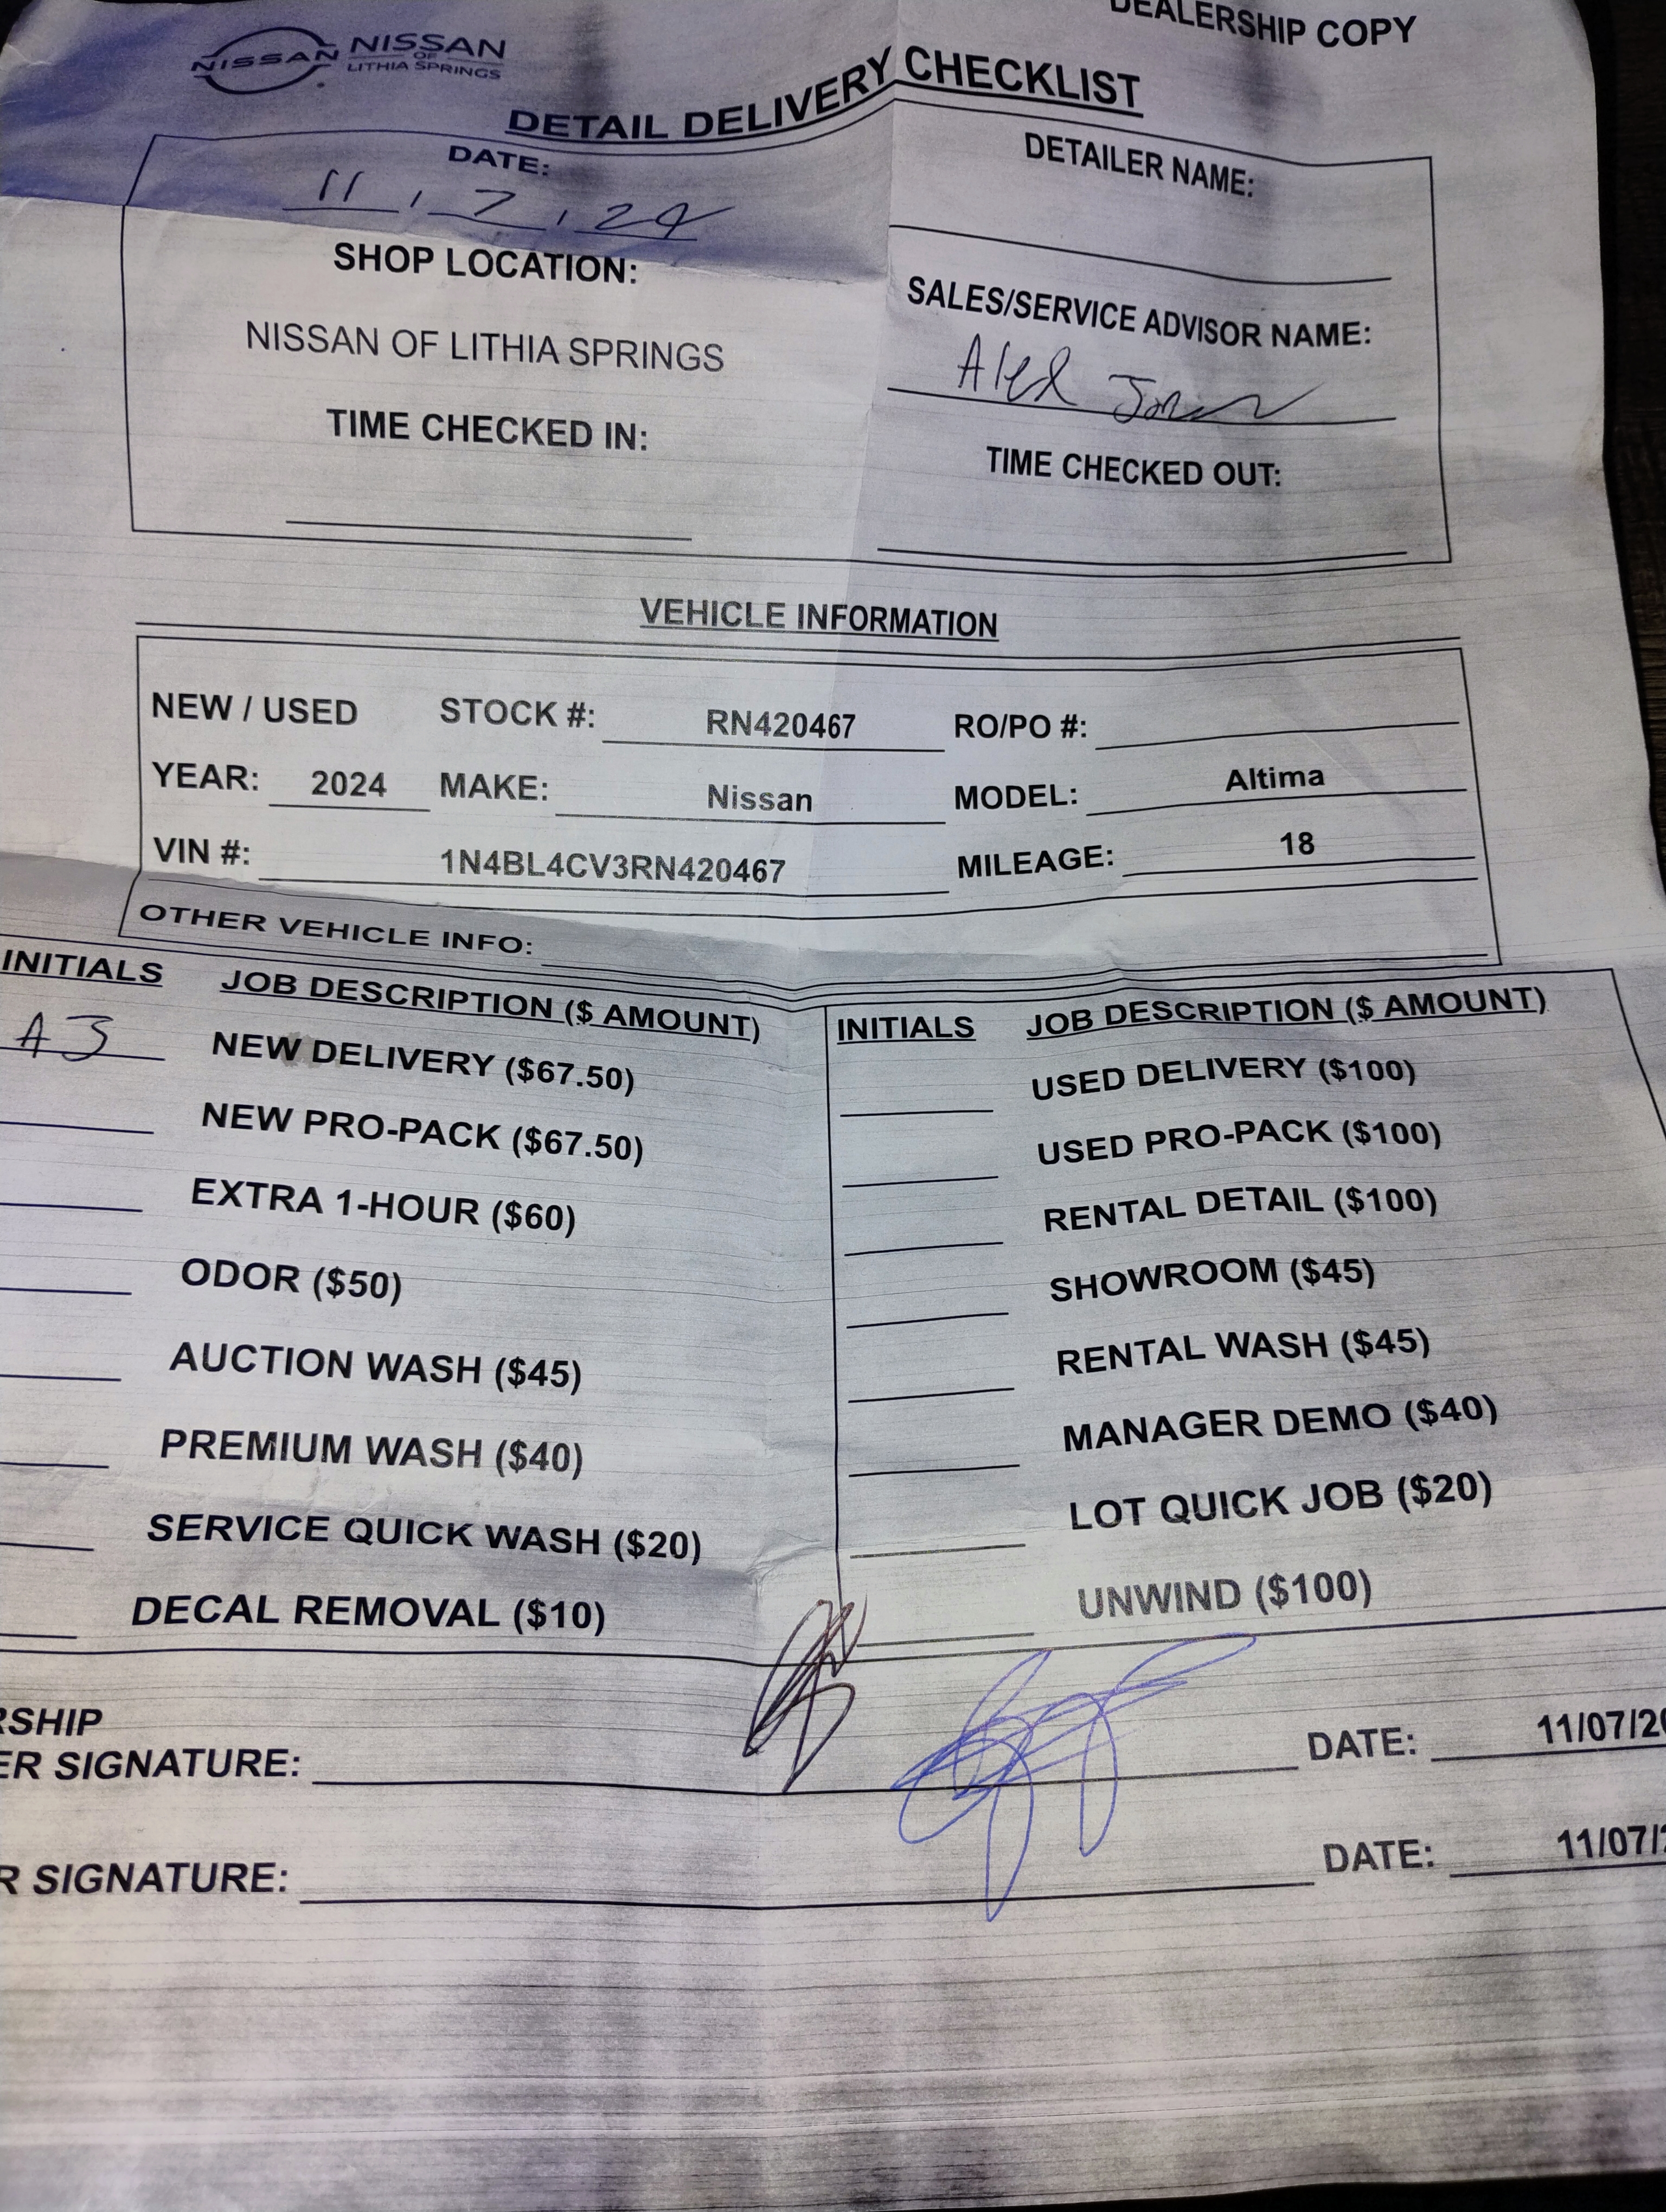 DEALERSHIP COPY
NISSAN NISSAN
OF
LITHIA SPRINGS
DETAIL DELIVERY CHECKLIST
DATE: DETAILER NAME:
11 / 7 / 24
SHOP LOCATION: SALES/SERVICE ADVISOR NAME:
NISSAN OF LITHIA SPRINGS Alex
TIME CHECKED IN: TIME CHECKED OUT:
VEHICLE INFORMATION
NEW / USED STOCK #: RN420467 RO/PO #:
YEAR: 2024 MAKE: Nissan MODEL: Altima
VIN #: 1N4BL4CV3RN420467 MILEAGE: 18
OTHER VEHICLE INFO:
INITIALS JOB DESCRIPTION ($ AMOUNT) INITIALS JOB DESCRIPTION ($ AMOUNT)
AJ NEW DELIVERY ($67.50) USED DELIVERY ($100)
NEW PRO-PACK ($67.50) USED PRO-PACK ($100)
EXTRA 1-HOUR ($60) RENTAL DETAIL ($100)
ODOR ($50) SHOWROOM ($45)
AUCTION WASH ($45) RENTAL WASH ($45)
PREMIUM WASH ($40) MANAGER DEMO ($40)
SERVICE QUICK WASH ($20) LOT QUICK JOB ($20)
DECAL REMOVAL ($10) UNWIND ($100)
RSHIP
ER SIGNATURE: DATE: 11/07/20
R SIGNATURE: DATE: 11/07/2